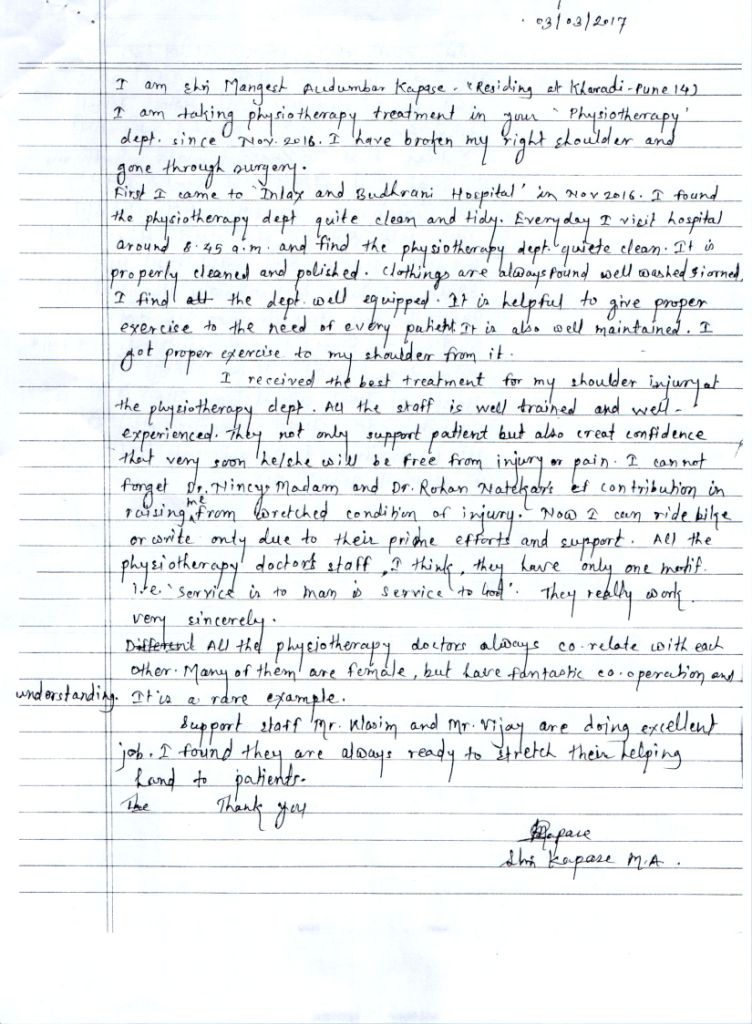 03/03/2017
I am Shri Mangesh Audumbar Kapase. (Residing at Kharadi-Pune 14)
I am taking physiotherapy treatment in your 'Physiotherapy'
dept. since Nov. 2016. I have broken my right shoulder and
gone through surgery.
First I came to 'Inlax and Budhrani Hospital' in Nov 2016. I found
the physiotherapy dept quite clean and tidy. Everyday I visit hospital
around 8.45 a.m. and find the physiotherapy dept. quiete clean. It is
properly cleaned and polished. Clothings are always found well washed & iorned.
I find all the dept. well equipped. It is helpful to give proper
exercise to the need of every patient. It is also well maintained. I
got proper exercise to my shoulder from it.
I received the best treatment for my shoulder injury at
the physiotherapy dept. All the staff is well trained and well-
experienced. They not only support patient but also creat confidence
that very soon he/she will be free from injury or pain. I can not
forget Dr. Nincys Madam and Dr. Rohan Natekar's contribution in
raising me from wretched condition of injury. Now I can ride bike
or write only due to their prime efforts and support. All the
physiotherapy doctors staff, I think, they have only one motif.
i.e. 'Service is to man is service to God'. They really work
very sincerely.
Different All the physiotherapy doctors always co-relate with each
other. Many of them are female, but have fantastic co-operation and
understanding. It is a rare example.
Support staff Mr. Wasim and Mr. Vijay are doing excellent
job. I found they are always ready to stretch their helping
hand to patients.
The Thank you
Kapase
Shri Kapase M.A.